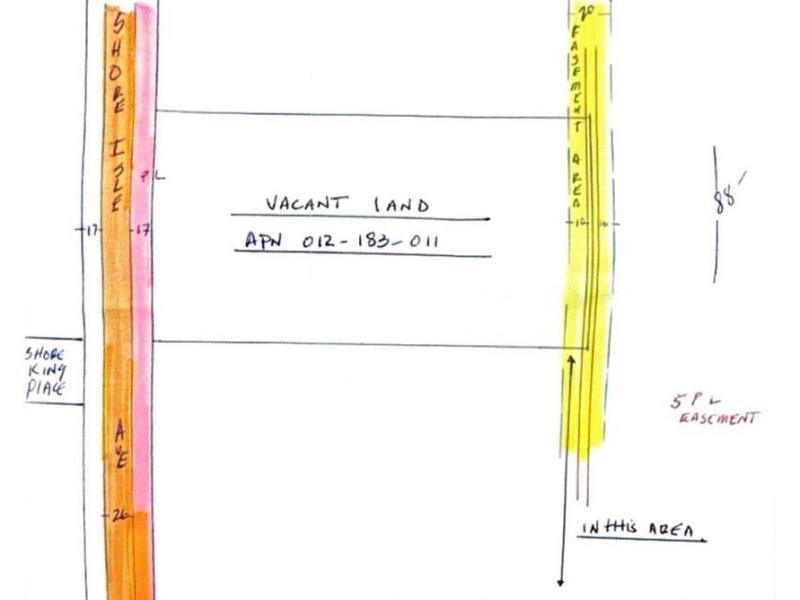 20
SHORE ISLE
EASEMENT AREA
PL
VACANT LAND
88'
17
17
10
10
APN 012-183-011
SHORE
KING
PLACE
5 PL
EASEMENT
AVE
26
IN THIS AREA.